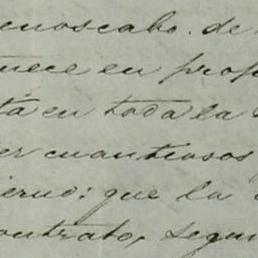 enoscabo. de
nece en prop
tá en toda la
er cuantiosos
ierno: que la
ontrato, segun